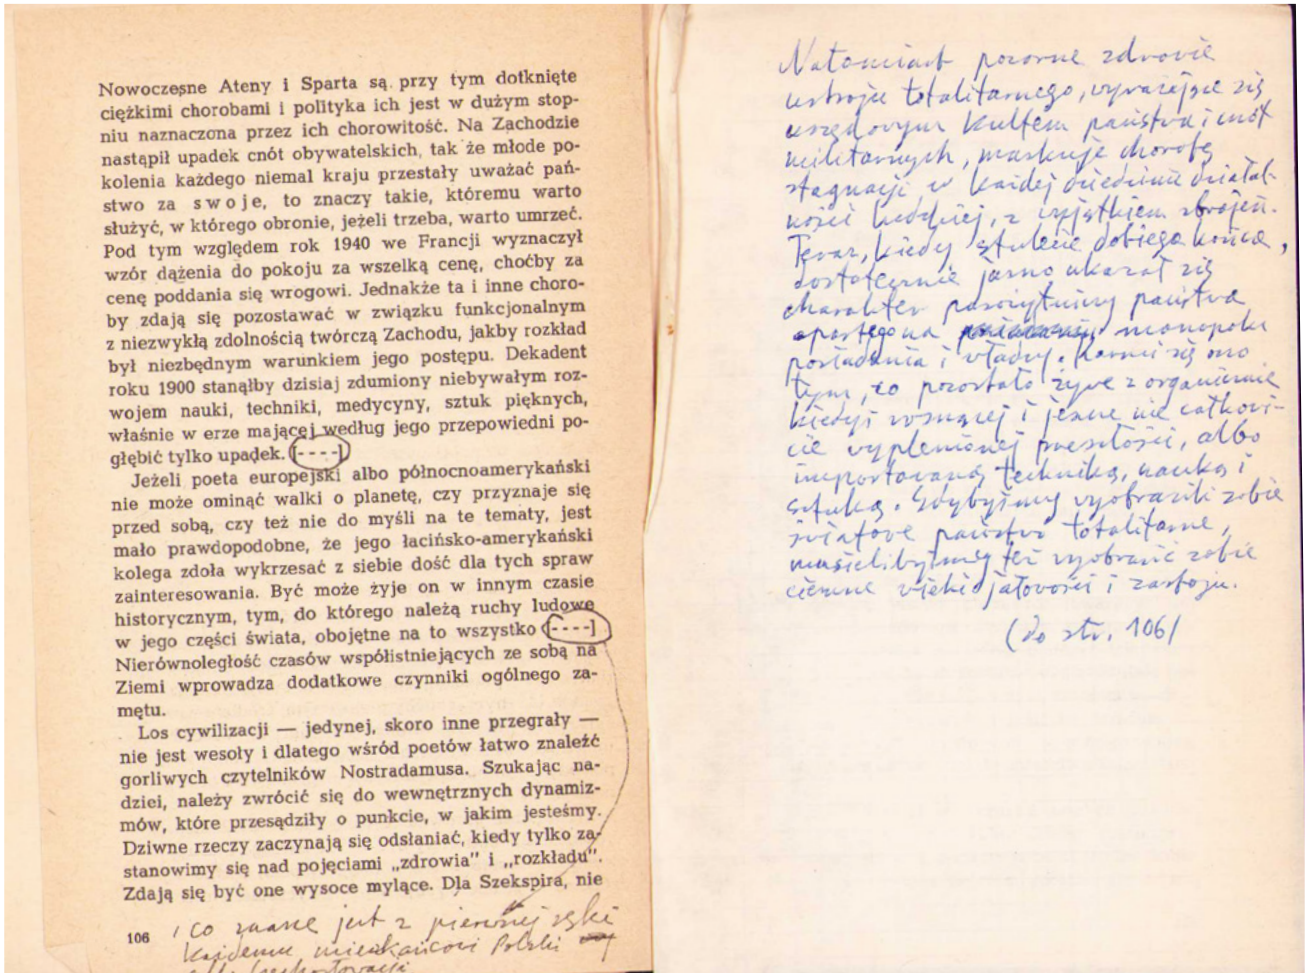 Nowoczesne Ateny i Sparta są przy tym dotknięte
ciężkimi chorobami i polityka ich jest w dużym stop-
niu naznaczona przez ich chorowitość. Na Zachodzie
nastąpił upadek cnót obywatelskich, tak że młode po-
kolenia każdego niemal kraju przestały uważać pań-
stwo za s w o j e, to znaczy takie, któremu warto
służyć, w którego obronie, jeżeli trzeba, warto umrzeć.
Pod tym względem rok 1940 we Francji wyznaczył
wzór dążenia do pokoju za wszelką cenę, choćby za
cenę poddania się wrogowi. Jednakże ta i inne choro-
by zdają się pozostawać w związku funkcjonalnym
z niezwykłą zdolnością twórczą Zachodu, jakby rozkład
był niezbędnym warunkiem jego postępu. Dekadent
roku 1900 stanąłby dzisiaj zdumiony niebywałym roz-
wojem nauki, techniki, medycyny, sztuk pięknych,
właśnie w erze mającej według jego przepowiedni po-
głębić tylko upadek. [----]
Jeżeli poeta europejski albo północnoamerykański
nie może ominąć walki o planetę, czy przyznaje się
przed sobą, czy też nie do myśli na te tematy, jest
mało prawdopodobne, że jego łacińsko-amerykański
kolega zdoła wykrzesać z siebie dość dla tych spraw
zainteresowania. Być może żyje on w innym czasie
historycznym, tym, do którego należą ruchy ludowe
w jego części świata, obojętne na to wszystko [----]
Nierównoległość czasów współistniejących ze sobą na
Ziemi wprowadza dodatkowe czynniki ogólnego za-
mętu.
Los cywilizacji — jedynej, skoro inne przegrały —
nie jest wesoły i dlatego wśród poetów łatwo znaleźć
gorliwych czytelników Nostradamusa. Szukając na-
dziei, należy zwrócić się do wewnętrznych dynamiz-
mów, które przesądziły o punkcie, w jakim jesteśmy.
Dziwne rzeczy zaczynają się odsłaniać, kiedy tylko za-
stanowimy się nad pojęciami „zdrowia” i „rozkładu”.
Zdają się być one wysoce mylące. Dla Szekspira, nie
106
, co znane jest z pierwszej ręki
każdemu mieszkańcowi Polski
Natomiast pozorne zdrowie
ustroju totalitarnego, wyrażające się
urzędowym kultem państwa i cnót
militarnych, maskuje chorobę
stagnacji w każdej dziedzinie działal-
ności ludzkiej, z wyjątkiem zbrojeń.
Teraz, kiedy stulecie dobiega końca,
dostatecznie jasno ukazał się
charakter pasożytniczy państwa
opartego na monopolu
posiadania i władzy. Karmi się ono
tym, co pozostało żywe z organicznie
kiedyś rosnącej i jeszcze nie całkowi-
cie wyplenionej przeszłości, albo
importowaną techniką, nauką i
sztuką. Gdybyśmy wyobrazili sobie
światowe państwo totalitarne,
musielibyśmy też wyobrazić sobie
ciemne wieki jałowości i zastoju.
(do str. 106)